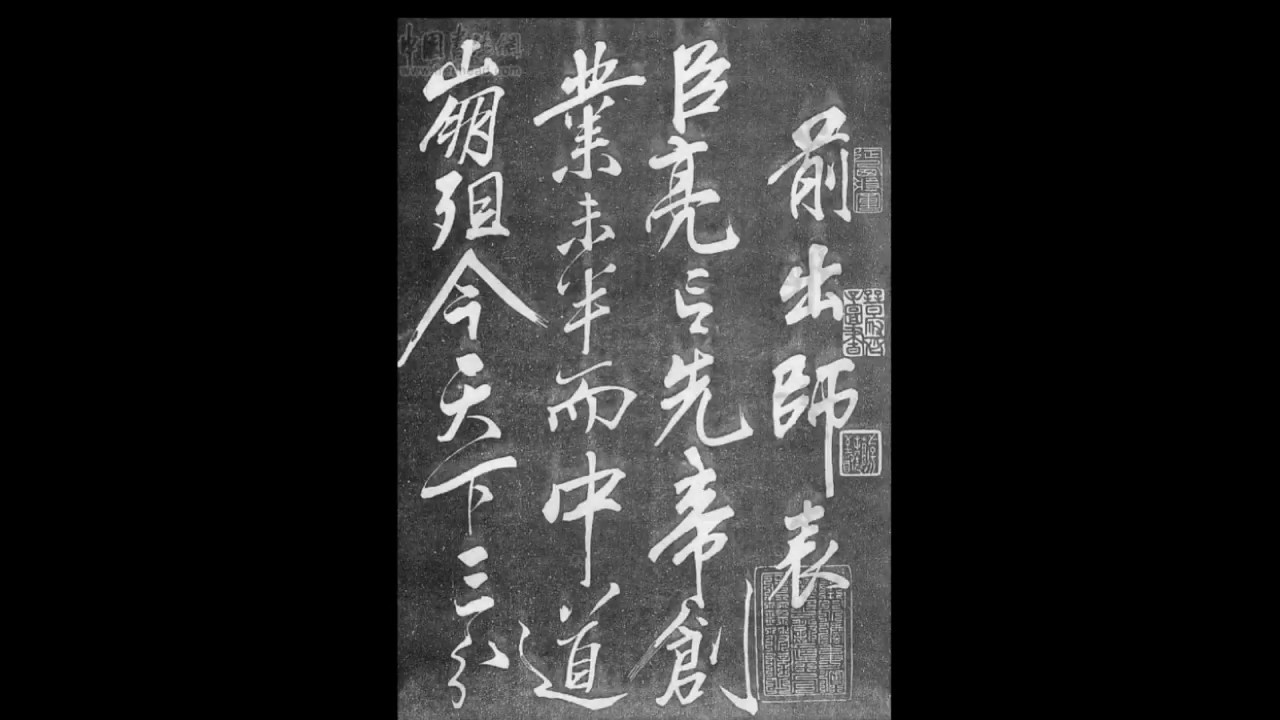 前出師表
臣亮言先帝創
業未半而中道
崩殂今天下三分
中国書法網